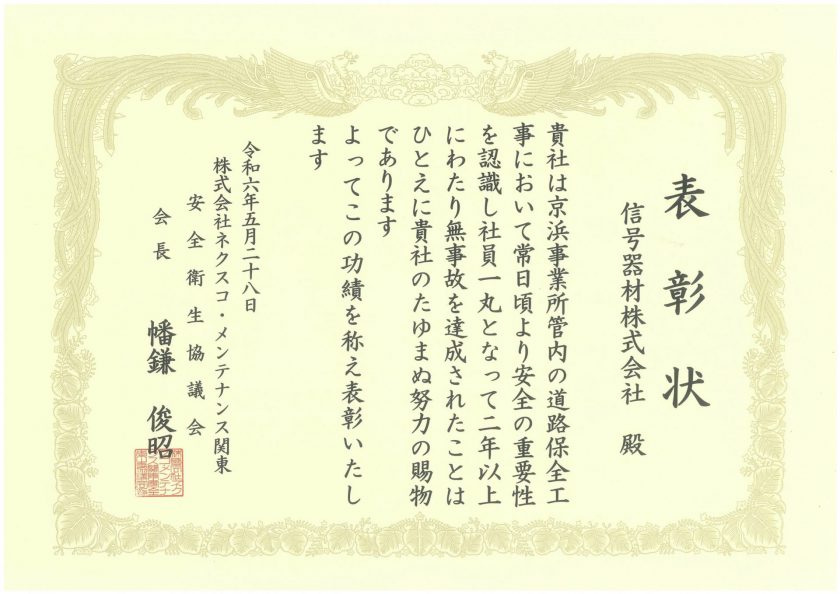 表彰状
信号器材株式会社 殿
貴社は京浜事業所管内の道路保全工
事において常日頃より安全の重要性
を認識し社員一丸となって二年以上
にわたり無事故を達成されたことは
ひとえに貴社のたゆまぬ努力の賜物
であります
よってこの功績を称え表彰いたし
ます
令和六年五月二十八日
株式会社ネクスコ・メンテナンス関東
安全衛生協議会
会長 幡鎌 俊昭